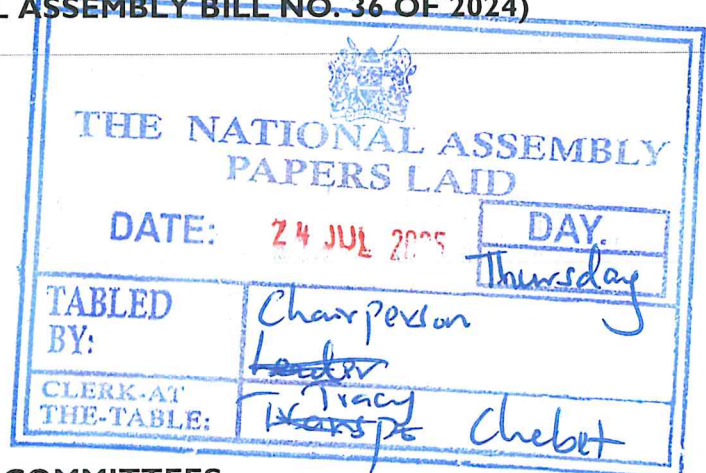 L ASSEMBLY BILL NO. 36 OF 2024)
THE NATIONAL ASSEMBLY
PAPERS LAID
DATE: 24 JUL 2025
DAY.
Thursday
TABLED BY:
Chairperson
Leader
CLERK-AT THE-TABLE:
Tracy Chebet
COMMITTEES